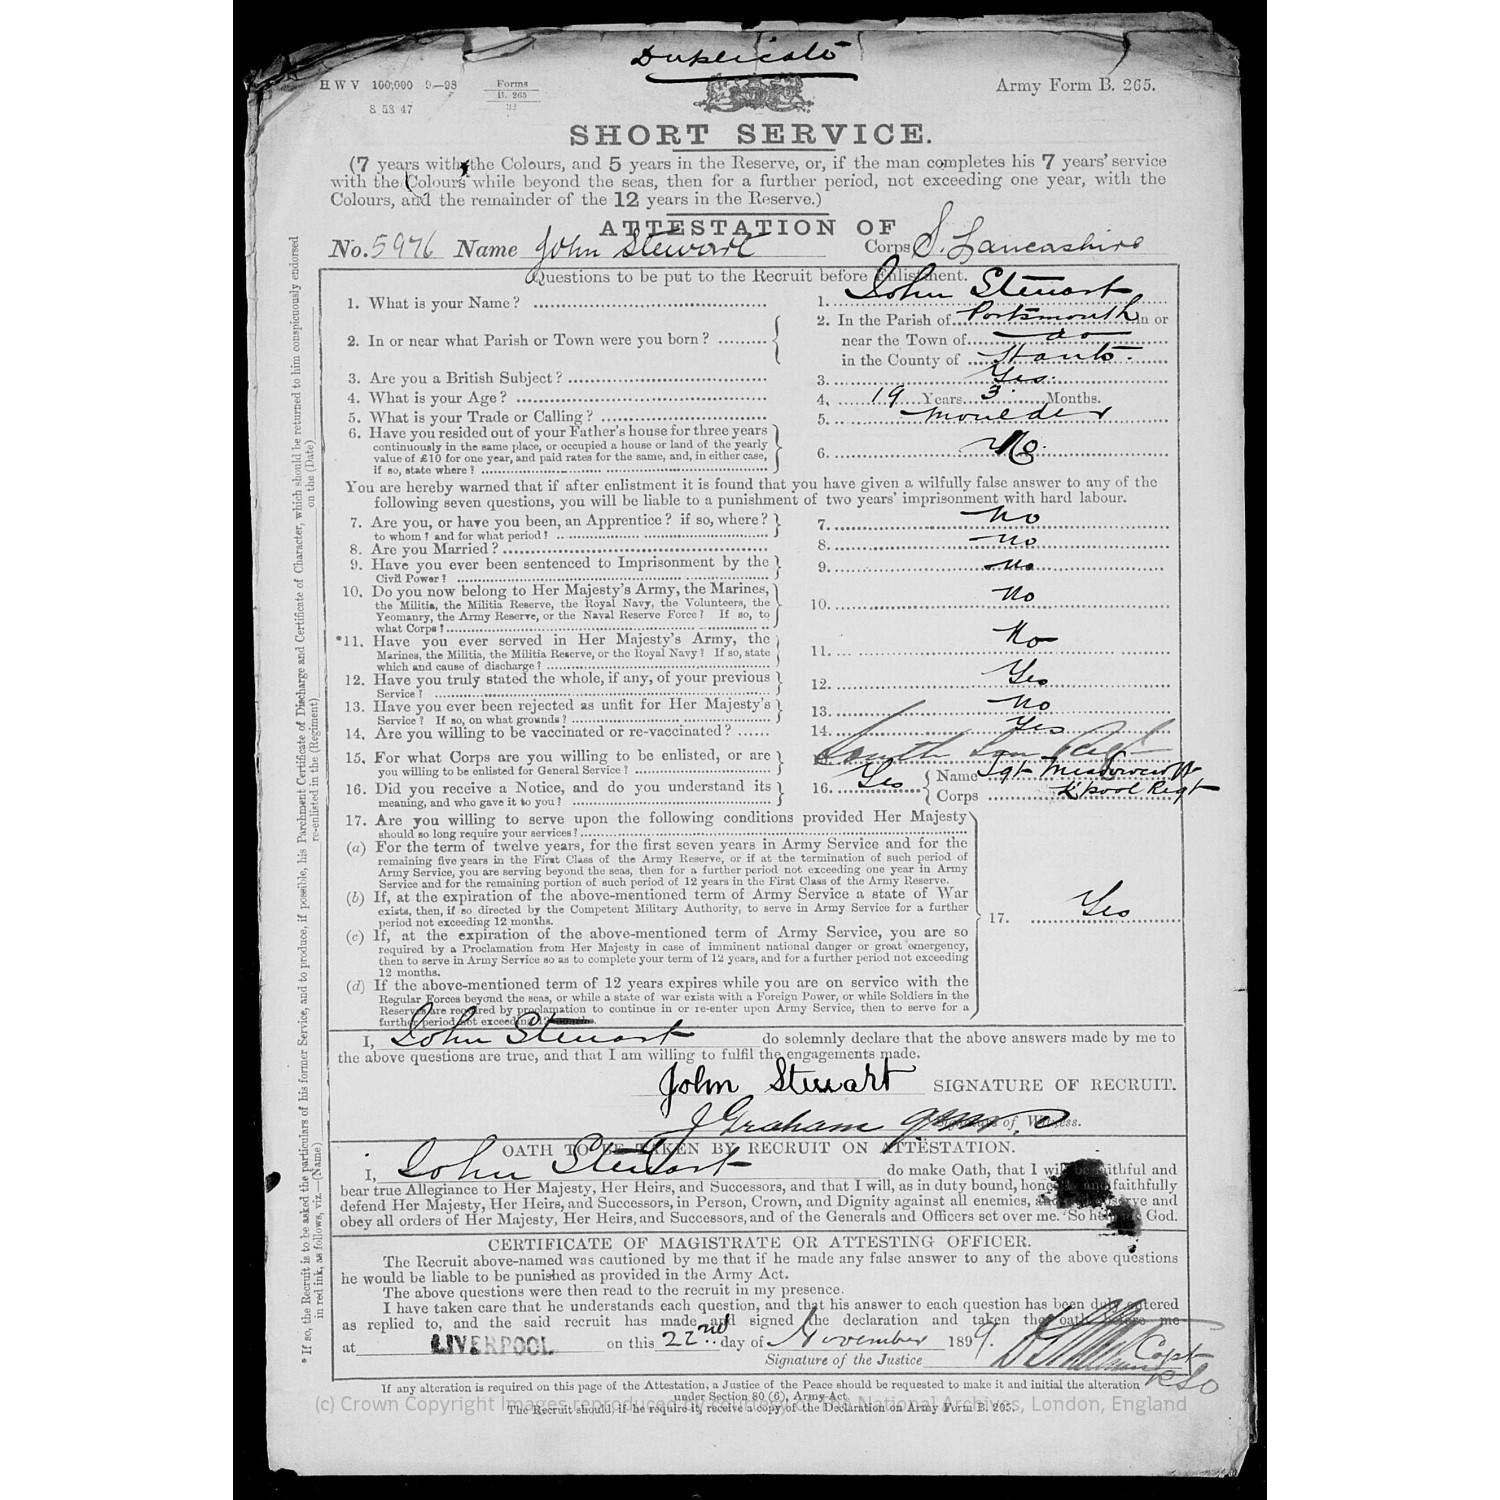 Duplicate
H W V 100,000 9—98 Forms B. 265 Army Form B. 265.
8 53 47
SHORT SERVICE.
(7 years with the Colours, and 5 years in the Reserve, or, if the man completes his 7 years' service
with the Colours while beyond the seas, then for a further period, not exceeding one year, with the
Colours, and the remainder of the 12 years in the Reserve.)
ATTESTATION OF
No. 5976 Name John Stewart Corps S. Lancashire
Questions to be put to the Recruit before Enlistment.
1. What is your Name? 1. John Stewart
2. In or near what Parish or Town were you born? 2. In the Parish of Portsmouth in or
near the Town of do
in the County of Hants.
3. Are you a British Subject? 3. Yes.
4. What is your Age? 4. 19 Years 3 Months.
5. What is your Trade or Calling? 5. Moulder
6. Have you resided out of your Father's house for three years
continuously in the same place, or occupied a house or land of the yearly
value of £10 for one year, and paid rates for the same, and, in either case,
if so, state where? 6. No.
You are hereby warned that if after enlistment it is found that you have given a wilfully false answer to any of the
following seven questions, you will be liable to a punishment of two years' imprisonment with hard labour.
7. Are you, or have you been, an Apprentice? if so, where? 7. No
to whom? and for what period?
8. Are you Married? 8. No
9. Have you ever been sentenced to Imprisonment by the
Civil Power? 9. No
10. Do you now belong to Her Majesty's Army, the Marines,
the Militia, the Militia Reserve, the Royal Navy, the Volunteers, the
Yeomanry, the Army Reserve, or the Naval Reserve Force? If so, to
what Corps? 10. No
*11. Have you ever served in Her Majesty's Army, the
Marines, the Militia, the Militia Reserve, or the Royal Navy? If so, state
which and cause of discharge? 11. No
12. Have you truly stated the whole, if any, of your previous
Service? 12. Yes
13. Have you ever been rejected as unfit for Her Majesty's
Service? If so, on what grounds? 13. No
14. Are you willing to be vaccinated or re-vaccinated? 14. Yes
15. For what Corps are you willing to be enlisted, or are
you willing to be enlisted for General Service? 15. South Lan Regt
16. Did you receive a Notice, and do you understand its
meaning, and who gave it to you? 16. Yes Name Sgt
Corps L'pool Regt
17. Are you willing to serve upon the following conditions provided Her Majesty
should so long require your services?
(a) For the term of twelve years, for the first seven years in Army Service and for the
remaining five years in the First Class of the Army Reserve, or if at the termination of such period of
Army Service, you are serving beyond the seas, then for a further period not exceeding one year in Army
Service and for the remaining portion of such period of 12 years in the First Class of the Army Reserve.
(b) If, at the expiration of the above-mentioned term of Army Service a state of War
exists, then, if so directed by the Competent Military Authority, to serve in Army Service for a further
period not exceeding 12 months. 17. Yes
(c) If, at the expiration of the above-mentioned term of Army Service, you are so
required by a Proclamation from Her Majesty in case of imminent national danger or great emergency,
then to serve in Army Service so as to complete your term of 12 years, and for a further period not exceeding
12 months.
(d) If the above-mentioned term of 12 years expires while you are on service with the
Regular Forces beyond the seas, or while a state of war exists with a Foreign Power, or while Soldiers in the
Reserve are required by proclamation to continue in or re-enter upon Army Service, then to serve for a
further period not exceeding 12 months.
I, John Stewart do solemnly declare that the above answers made by me to
the above questions are true, and that I am willing to fulfil the engagements made.
John Stewart SIGNATURE OF RECRUIT.
J Graham Signature of Witness.
OATH TO BE TAKEN BY RECRUIT ON ATTESTATION.
I, John Stewart do make Oath, that I will be faithful and
bear true Allegiance to Her Majesty, Her Heirs, and Successors, and that I will, as in duty bound, honestly and faithfully
defend Her Majesty, Her Heirs, and Successors, in Person, Crown, and Dignity against all enemies, and will observe and
obey all orders of Her Majesty, Her Heirs, and Successors, and of the Generals and Officers set over me. So help me God.
CERTIFICATE OF MAGISTRATE OR ATTESTING OFFICER.
The Recruit above-named was cautioned by me that if he made any false answer to any of the above questions
he would be liable to be punished as provided in the Army Act.
The above questions were then read to the recruit in my presence.
I have taken care that he understands each question, and that his answer to each question has been duly entered
as replied to, and the said recruit has made and signed the declaration and taken the oath before me
at LIVERPOOL on this 22nd day of November 1899.
Signature of the Justice Capt
RSO
If any alteration is required on this page of the Attestation, a Justice of the Peace should be requested to make it and initial the alteration
under Section 80 (6), Army Act.
The Recruit should, if he require it, receive a copy of the Declaration on Army Form B. 265.
(c) Crown Copyright Images reproduced by courtesy of The National Archives, London, England
* If so, the Recruit is to be asked the particulars of his former Service, and to produce, if possible, his Parchment Certificate of Discharge and Certificate of Character, which should be returned to him conspicuously endorsed
in red ink, as follows, viz.—(Name) re-enlisted in the (Regiment) on the (Date)